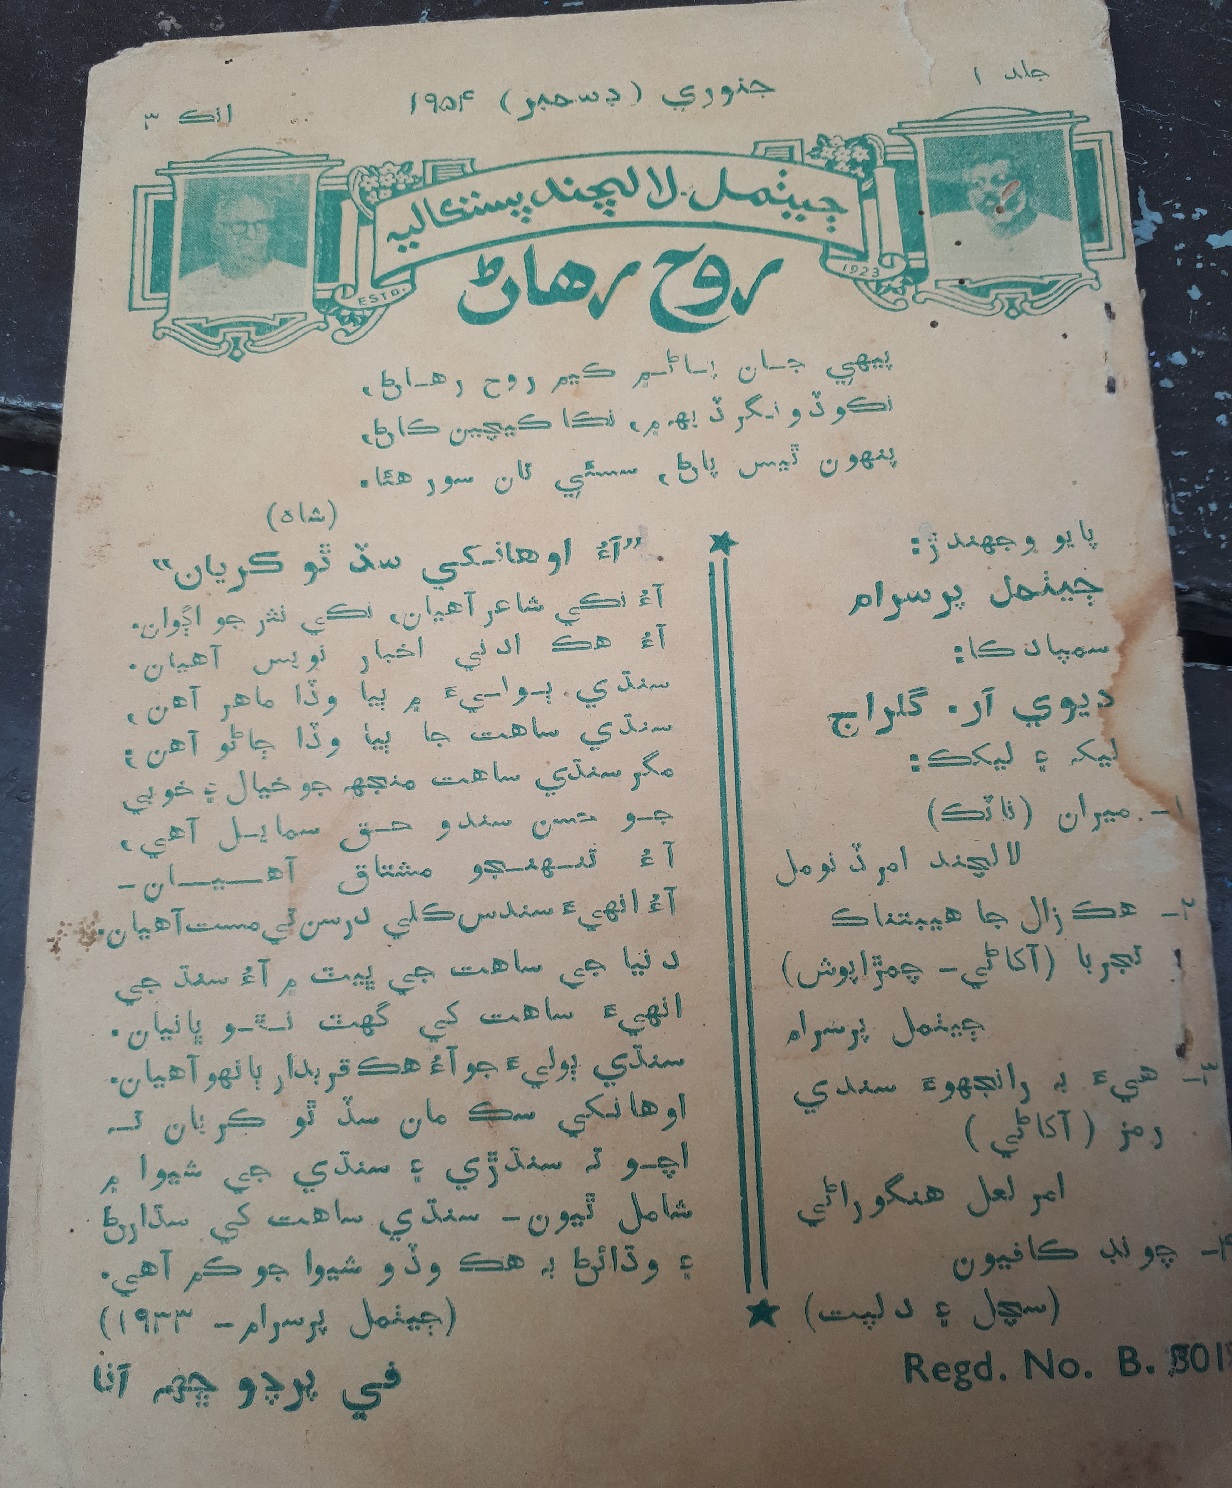 جلد ۱
جنوري (ڊسمبر) ۱۹۵۴
انڪ ۳
ڄيٺمل لالچند پستڪاليه
ESTD. 1923
روح رهاڻ
پيهي جان پاڻ ۾ ڪيم روح رهاڻ،
نڪو ڏونگر ڏيهه ۾، نڪا ڪيچين ڪاڻ،
پنهون ٿيس پاڻ، سسئي تان سور هئا.
(شاهه)
پايو وجهندڙ:
ڄيٺمل پرسرام
سمپادڪا:
ديوي آر. گلراج
ليکه ۽ ليکڪ:
۱- ميران (ناٽڪ)
لالچند امر ڏنومل
۲- هڪ زال جا هيبتناڪ
تجربا (آکاڻي - چمڙاپوش)
ڄيٺمل پرسرام
۳- هيءَ به رانجهوءَ سندي
رمز (آکاڻي)
امر لعل هنگوراڻي
۴- چونڊ ڪافيون
(سچل ۽ دلپت)
Regd. No. B.
”آءٌ اوهانکي سڏ ٿو ڪريان“
آءٌ نڪي شاعر آهيان، نڪي نثر جو اڳوان.
آءٌ هڪ ادني اخبار نويس آهيان.
سنڌي ٻوليءَ ۾ ٻيا وڏا ماهر آهن،
سنڌي ساهت جا ٻيا وڏا ڄاڻو آهن؛
مگر سنڌي ساهت منجهه جو خيال ۽ خوبي
جو حسن سندو حق سمايل آهي،
آءٌ تنهنجو مشتاق آهيان-
آءٌ انهيءَ سندس ڪلي درسن تي مست آهيان.
دنيا جي ساهت جي ڀيٽ ۾ آءٌ سنڌ جي
انهيءَ ساهت کي گهٽ نٿو ڀانيان.
سنڌي ٻوليءَ جو آءٌ هڪ قربدار ٻانهو آهيان.
اوهانکي سڪ مان سڏ ٿو ڪريان ته
اچو ته سنڌڙي ۽ سنڌي جي شيوا ۾
شامل ٿيون - سنڌي ساهت کي سڌارڻ
۽ وڌائڻ به هڪ وڏو شيوا جو ڪم آهي.
(ڄيٺمل پرسرام - ۱۹۳۳)
في پرچو ڇهه آنا